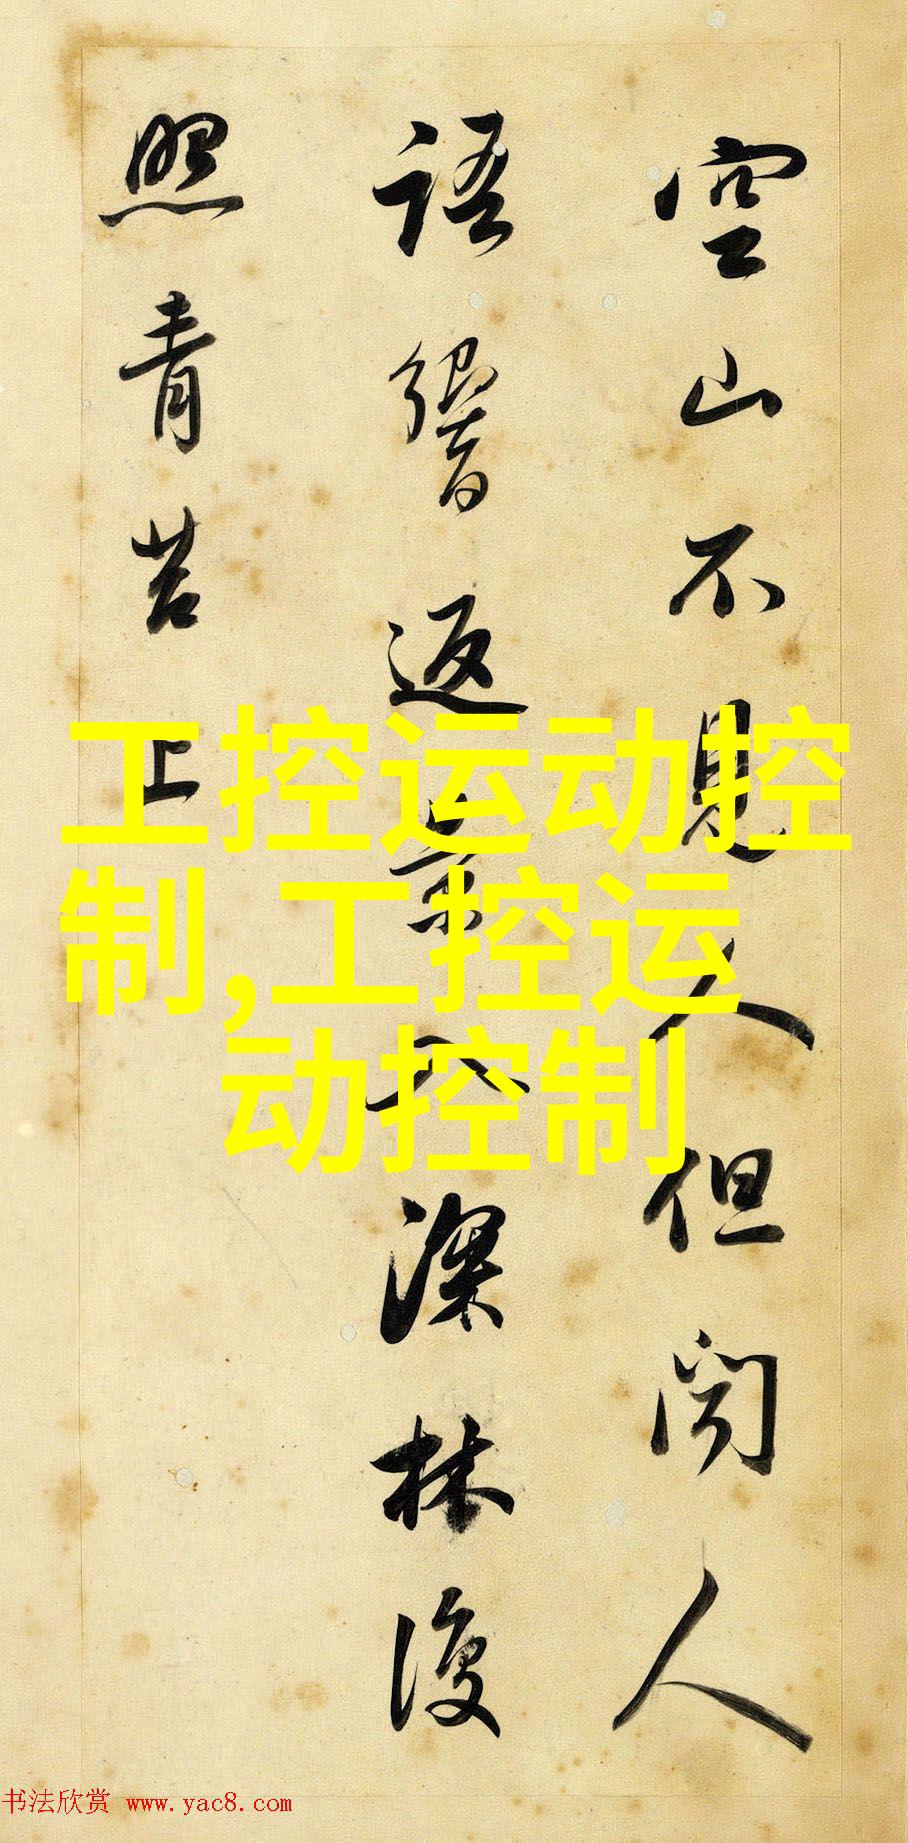 空山不見人但聞人
語響返景入深林復
照青苔上
工控运动控
制,工控运
动控制
书法欣赏 www.yac8.com